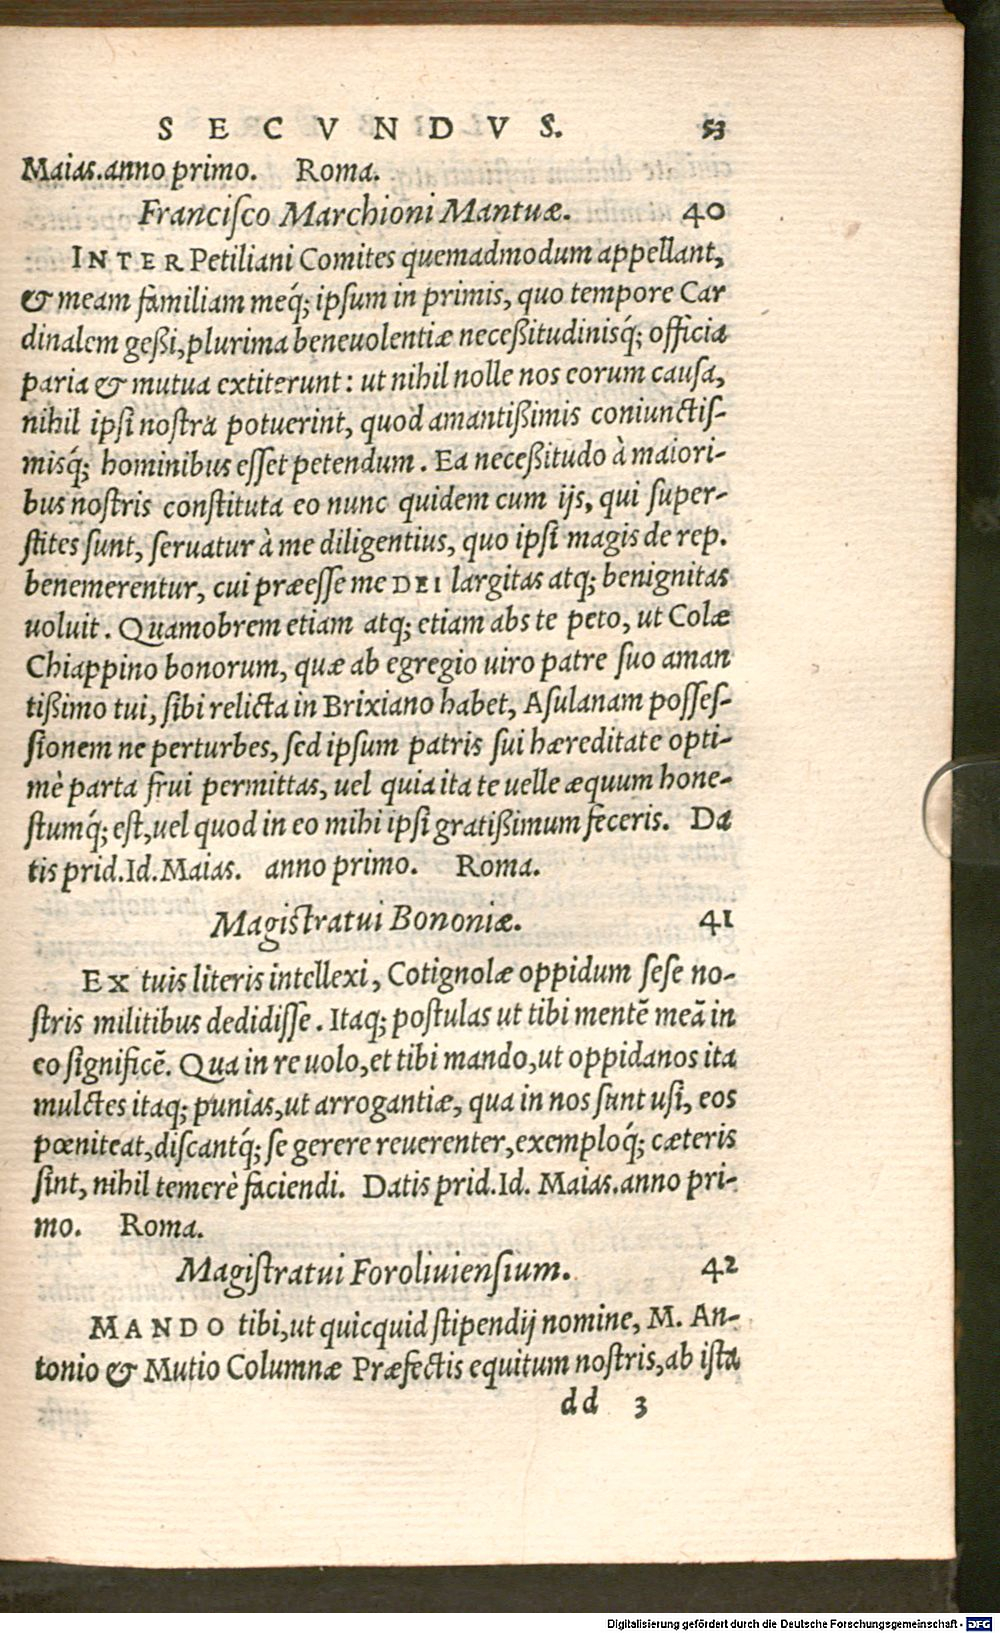 SECVNDVS. 53
Maias. anno primo. Roma.
Francisco Marchioni Mantuæ. 40
INTER Petiliani Comites quemadmodum appellant,
& meam familiam meq́; ipsum in primis, quo tempore Car
dinalem geßi, plurima beneuolentiæ neceßitudinisq́; officia
paria & mutua extiterunt: ut nihil nolle nos eorum causa,
nihil ipsi nostra potuerint, quod amantißimis coniunctis-
misq́; hominibus esset petendum. Ea neceßitudo à maiori-
bus nostris constituta eo nunc quidem cum ijs, qui super-
stites sunt, seruatur à me diligentius, quo ipsi magis de rep.
benemerentur, cui præesse me DEI largitas atq; benignitas
uoluit. Quamobrem etiam atq; etiam abs te peto, ut Colæ
Chiappino bonorum, quæ ab egregio uiro patre suo aman
tißimo tui, sibi relicta in Brixiano habet, Asulanam posses-
sionem ne perturbes, sed ipsum patris sui hæreditate opti-
mè parta frui permittas, uel quia ita te uelle æquum hone-
stumq́; est, uel quod in eo mihi ipsi gratißimum feceris. Da
tis prid. Id. Maias. anno primo. Roma.
Magistratui Bononiæ. 41
EX tuis literis intellexi, Cotignolæ oppidum sese no-
stris militibus dedidisse. Itaq; postulas ut tibi mentē meā in
eo significē. Qua in re uolo, et tibi mando, ut oppidanos ita
mulctes itaq; punias, ut arrogantiæ, qua in nos sunt usi, eos
pœniteat, discantq́; se gerere reuerenter, exemploq́; cæteris
sint, nihil temerè faciendi. Datis prid. Id. Maias. anno pri-
mo. Roma.
Magistratui Foroliuiensium. 42
MANDO tibi, ut quicquid stipendij nomine, M. An-
tonio & Mutio Columnæ Præfectis equitum nostris, ab ista
dd 3
Digitalisierung gefördert durch die Deutsche Forschungsgemeinschaft - DFG